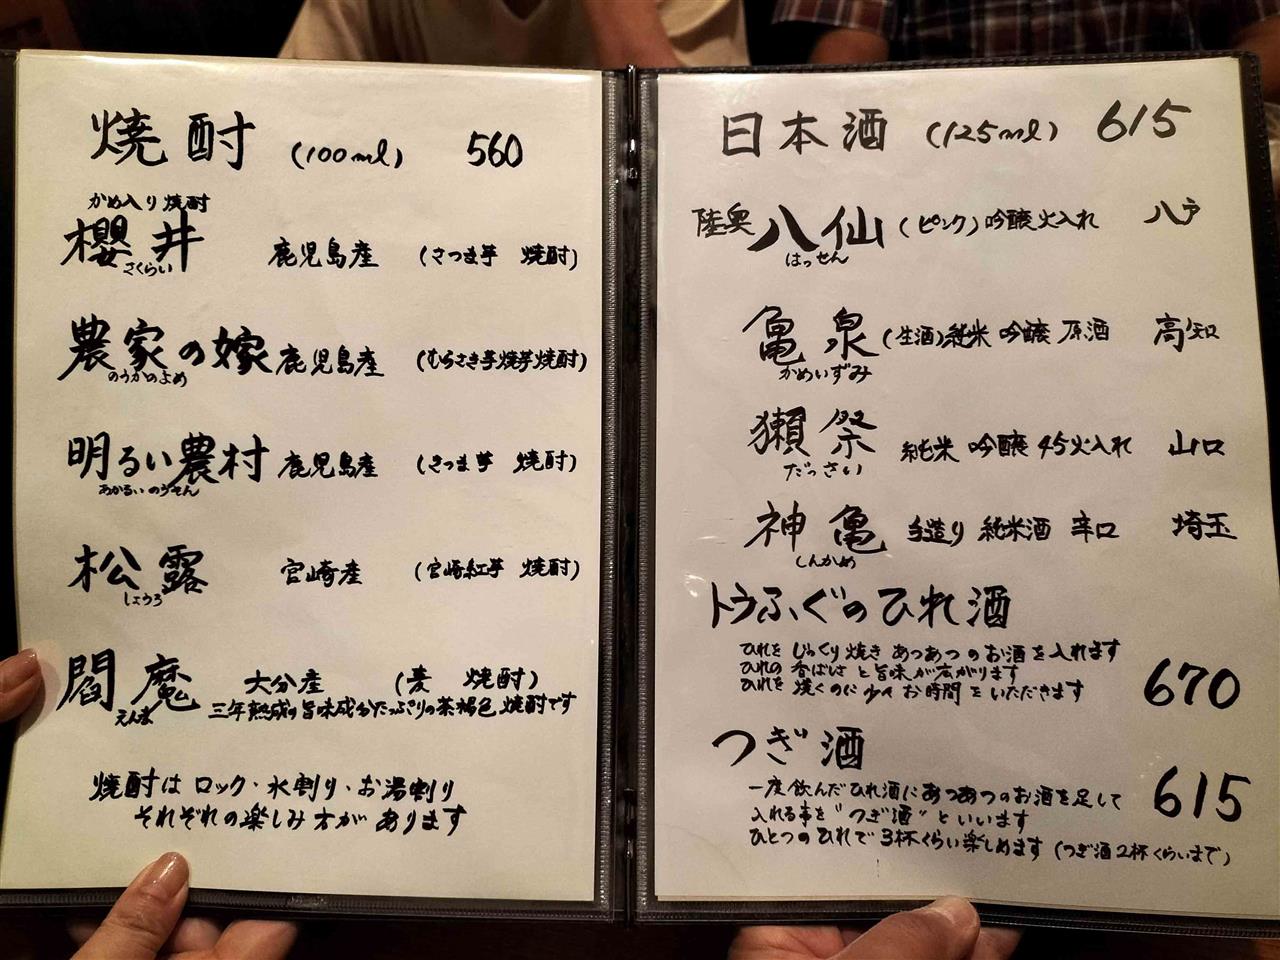 焼酎 (100ml) 560
かめ入り焼酎
櫻井 鹿児島産 (さつま芋 焼酎)
さくらい
農家の嫁 鹿児島産 (むらさき芋焼芋焼酎)
のうかのよめ
明るい農村 鹿児島産 (さつま芋 焼酎)
あかるいのうそん
松露 宮崎産 (宮崎紅芋 焼酎)
しょうろ
閻魔 大分産 (麦 焼酎)
えんま 三年熟成の旨味成分たっぷりの茶褐色焼酎です
焼酎は ロック・水割り・お湯割り
それぞれの楽しみ方が あります
日本酒 (125ml) 615
陸奥 八仙 (ピンク) 吟醸火入れ 八戸
はっせん
亀泉 (生酒) 純米 吟醸 原酒 高知
かめいずみ
獺祭 純米 吟醸 45火入れ 山口
だっさい
神亀 手造り 純米酒 辛口 埼玉
しんかめ
トラふぐのひれ酒
ひれを じっくり焼き あつあつのお酒を入れます
ひれの 香ばしさと旨味が広がります
ひれを 焼くのに少々 お時間をいただきます
670
つぎ酒
一度飲んだひれ酒にあつあつのお酒を足して
入れる事を"つぎ酒"といいます
ひとつのひれで3杯くらい楽しめます (つぎ酒2杯くらいまで)
615